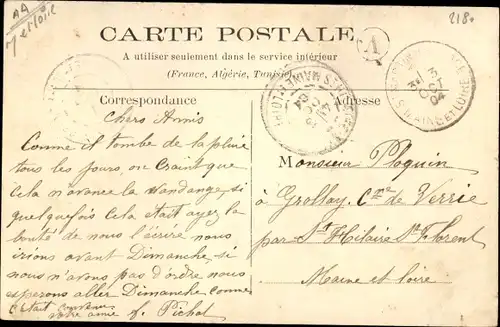 AA
M et Loire
218.
CARTE POSTALE
A
A utiliser seulement dans le service intérieur
(France, Algérie, Tunisie)
Correspondance
Adresse
MAINE ET LOIRE
chers Amis
Comme il tombe de la pluie
tous les jours, on Craint que
Cela n'avance la Vendange, si
quelquefois Cela était ayez la
bonté de nous l'écrire nous
irions avant Dimanche, si
nous n'avons pas d'ordre nous
esperons aller Dimanche comme
c'était convenu
votre amie A. Pichot
Monsieur Ploquin
à Grollay, Cne de Verrie
par St Hilaire St Florent
Maine et loire